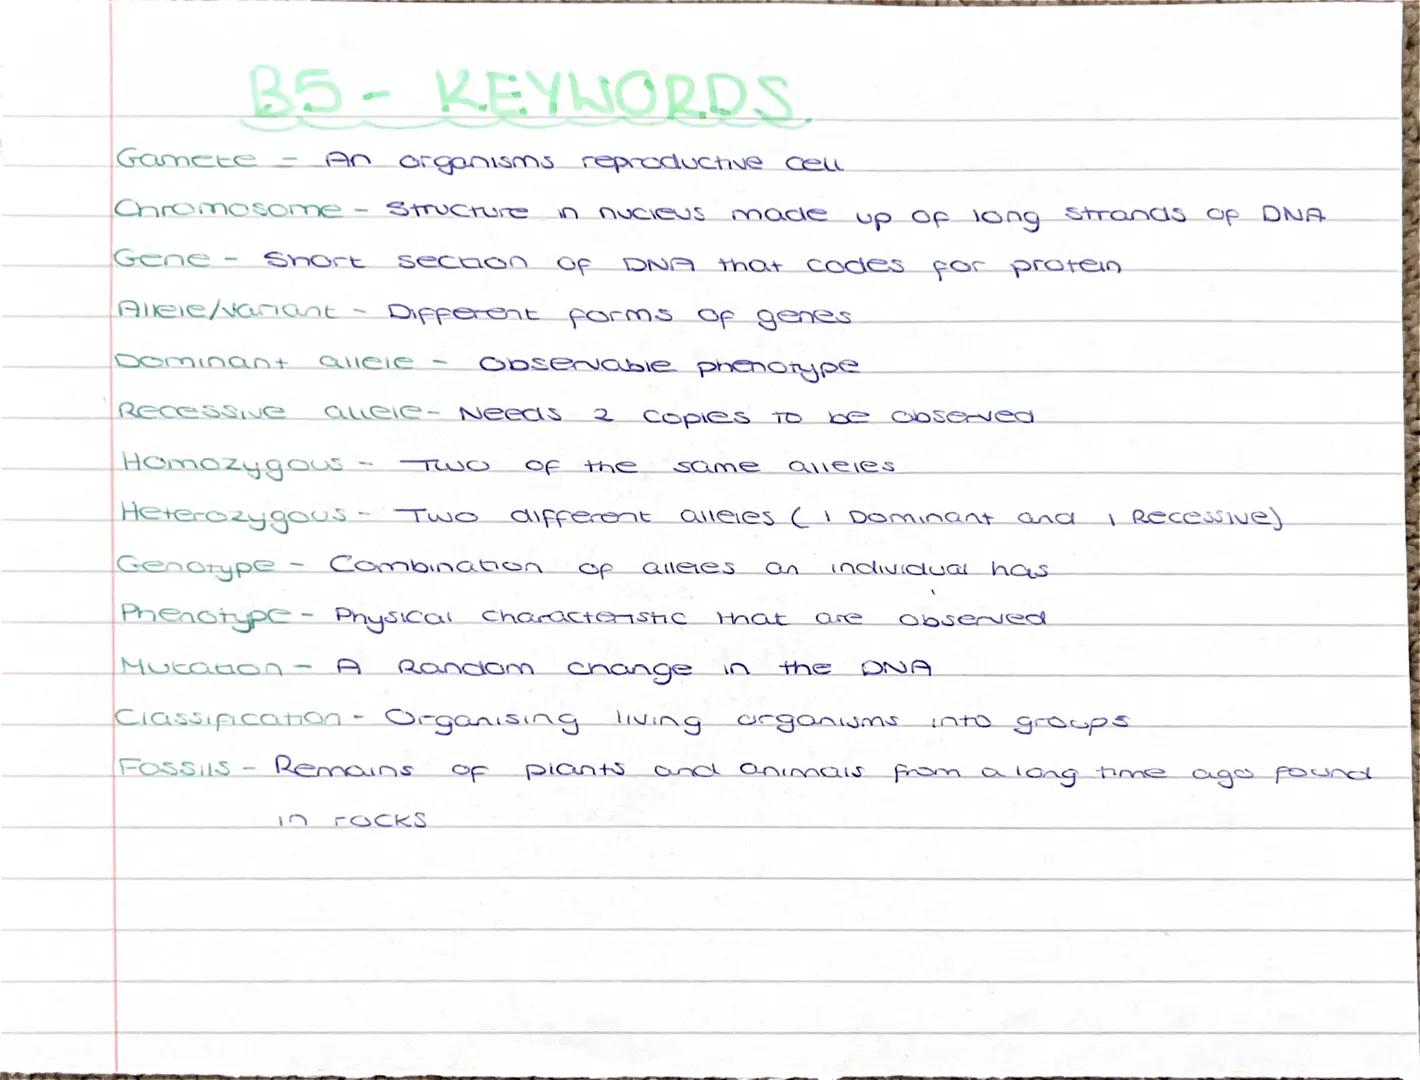 B5 - KEYWORDS.
Gamete - An organisms reproductive cell
Chromosome - Structure in nucleus made up of long strands of DNA
Gene - Short section of DNA that codes for protein
Allele/variant - Different forms of genes
Dominant allele - Observable phenotype
Recessive allele - Needs 2 copies to be observed
Homozygous - Two of the same alleles
Heterozygous - Two different alleles (1 Dominant and 1 Recessive)
Genotype - Combination of alleles an individual has
Phenotype - Physical characteristic that are observed
Mutation - A Random change in the DNA
Classification - Organising living organisms into groups
Fossils - Remains of plants and animals from a long time ago found
in rocks